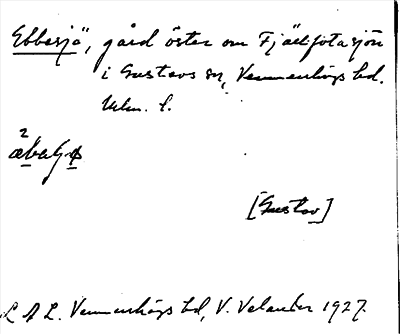 Ebbesjö, gård öster om Fjällfotasjön
i Gustavs sn, Vemmenhögs hd.
Mlm. l.
[Gustav]
L A L. Vemmenhögs hd, V. Velander 1927.